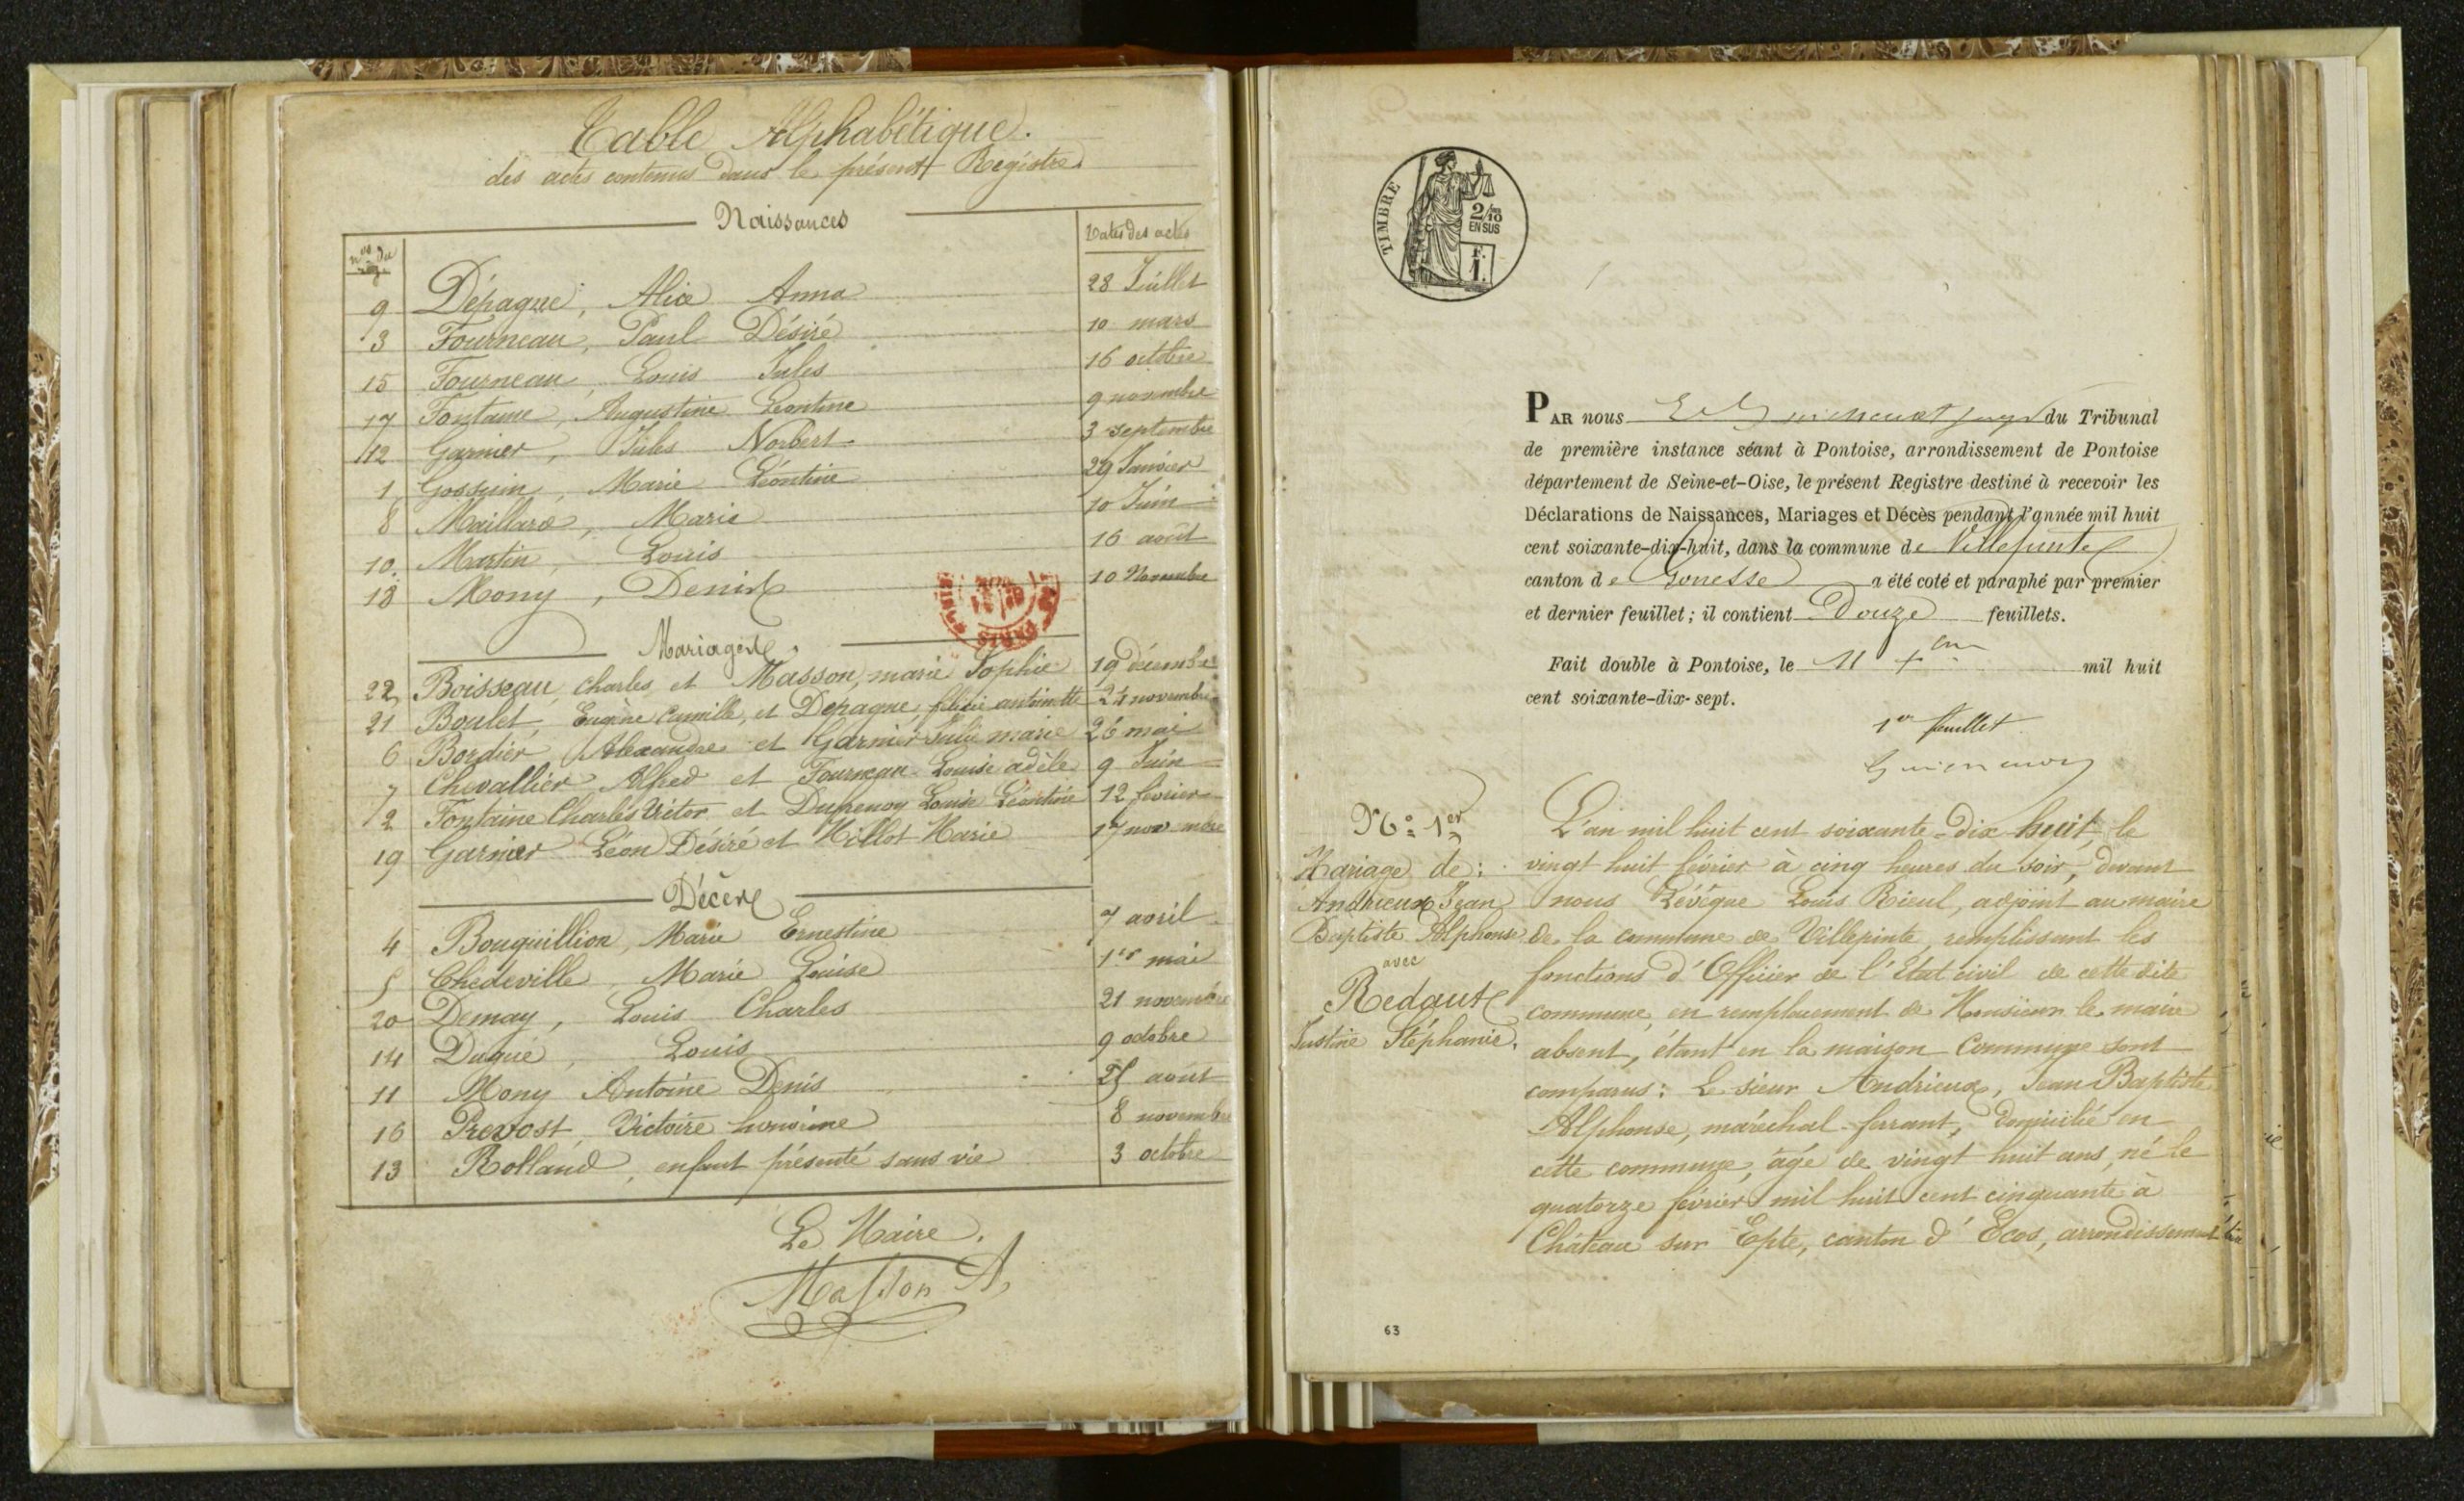 Table Alphabétique.
des actes contenus dans le présent Registre
Naissances
nos du
Dates des actes
9 Dépagne, Alice Anna 28 Juillet
3 Fourneau, Paul Désiré 10 mars
15 Fourneau, Louis Jules 16 octobre
17 Fontaine, Augustine Léontine 9 novembre
12 Garnier, Jules Norbert 3 septembre
1 Gossuin, Marie Léontine 29 Janvier
8 Maillard, Marie 10 Juin
10. Martin, Louis 16 août
18 Mony, Denis 10 Novembre
Mariages
22 Boisseau, Charles et Masson, marie Sophie 19 décembre
21 Boulet, Eugène Camille, et Depagne, félicie antoinette 24 novembre
6 Bordier Alexandre et Garnier Julie marie 26 mai
7 Chevallier Alfred et Fourneau Louise adèle 9 Juin
2 Fontaine Charles Victor et Dufrenoy Louise Léontine 12 février
19 Garnier Léon Désiré et Millot Marie 17 novembre
Décès
4 Bouquillion, Marie Ernestine 7 avril
5 Chedeville, Marie Louise 1er mai
20 Demay, Louis Charles 21 novembre
14 Duqué, Louis 9 octobre
11 Mony Antoine Denis 25 août
16 Prevost, Victoire honorine 8 novembre
13 Rolland, enfant présenté sans vie 3 octobre
Le Maire.
Masson A
TIMBRE
2/10
EN SUS
F.
1.
PAR nous du Tribunal
de première instance séant à Pontoise, arrondissement de Pontoise
département de Seine-et-Oise, le présent Registre destiné à recevoir les
Déclarations de Naissances, Mariages et Décès pendant l'année mil huit
cent soixante-dix-huit, dans la commune de Villepinte
canton de Gonesse a été coté et paraphé par premier
et dernier feuillet; il contient Douze feuillets.
Fait double à Pontoise, le 11 mil huit
cent soixante-dix-sept.
1er feuillet
No 1er
Mariage de:
Andrieux Jean
Baptiste Alphonse
avec
Redaut
Justine Stéphanie.
L'an mil huit cent soixante-dix-huit, le
vingt huit février à cinq heures du soir, devant
nous Lévêque Louis Rieul, adjoint au maire
de la commune de Villepinte, remplissant les
fonctions d'Officier de l'Etat civil de cette dite
commune, en remplacement de Monsieur le maire
absent, étant en la maison Commune sont
comparus: Le sieur Andrieux, Jean Baptiste
Alphonse, maréchal-ferrant, domicilié en
cette commune, âgé de vingt huit ans, né le
quatorze février mil huit cent cinquante à
Château sur Epte, canton d'Ecos, arrondissement
63